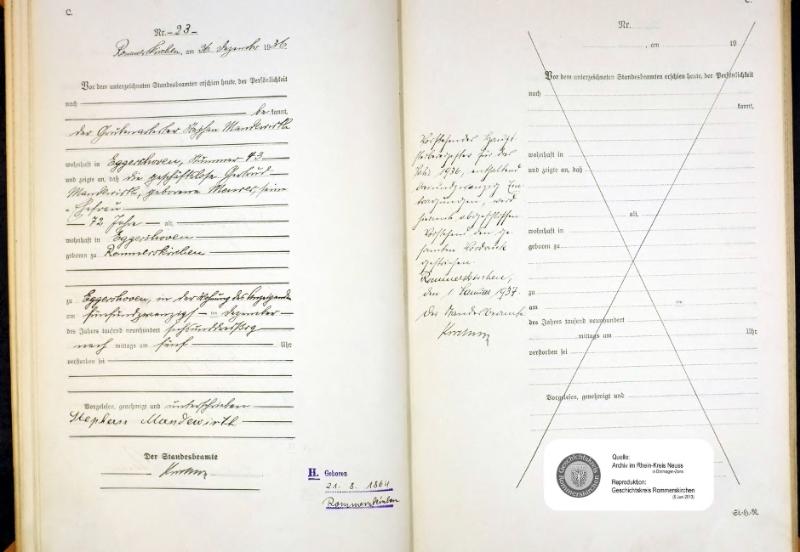 C.
Nr. 23
Rommerskirchen, am 26. Dezember 1936
Vor dem unterzeichneten Standesbeamten erschien heute, der Persönlichkeit
nach
be kannt,
der Stephan Mandewirth
wohnhaft in Eggershoven, Nummer 42
und zeigte an, daß die geschäftslose Gertrud
Mandewirth, geborene seine
Ehefrau
72 Jahre alt,
wohnhaft in Eggershoven
geboren zu Rommerskirchen
zu Eggershoven, in der Wohnung des Anzeigenden
am fünfundzwanzigsten Dezember
des Jahres tausend neunhundert sechsunddreißig
nach mittags um fünf Uhr
verstorben sei
Vorgelesen, genehmigt und unterschrieben
Stephan Mandewirth
Der Standesbeamte
H. Geboren
21. 8. 1864
Rommerskirchen
C.
Nr.
, am 19
Vor dem unterzeichneten Standesbeamten erschien heute, der Persönlichkeit
nach
kannt,
wohnhaft in
und zeigte an, daß
alt,
wohnhaft in
geboren zu
zu
am
des Jahres tausend neunhundert
mittags um Uhr
verstorben sei
Vorgelesen, genehmigt und
Vorstehendes Haupt
register für das
Jahr 1936, enthaltend
dreiundzwanzig Ein
tragungen, wird
hiermit abgeschlossen
Vorstehend den ge
samten Vordruck
gestrichen.
Rommerskirchen,
den 1. Januar 1937.
Der Standesbeamte
Geschichtskreis
Rommerskirchen
Quelle:
Archiv im Rhein-Kreis Neuss
in Dormagen-Zons
Reproduktion:
Geschichtskreis Rommerskirchen